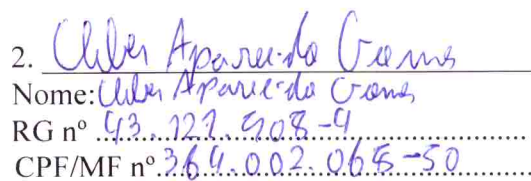 2. Cleber Aparecido Gomes
Nome: Cleber Aparecido Gomes
RG nº 43.121.908-4
CPF/MF nº 364.002.068-50